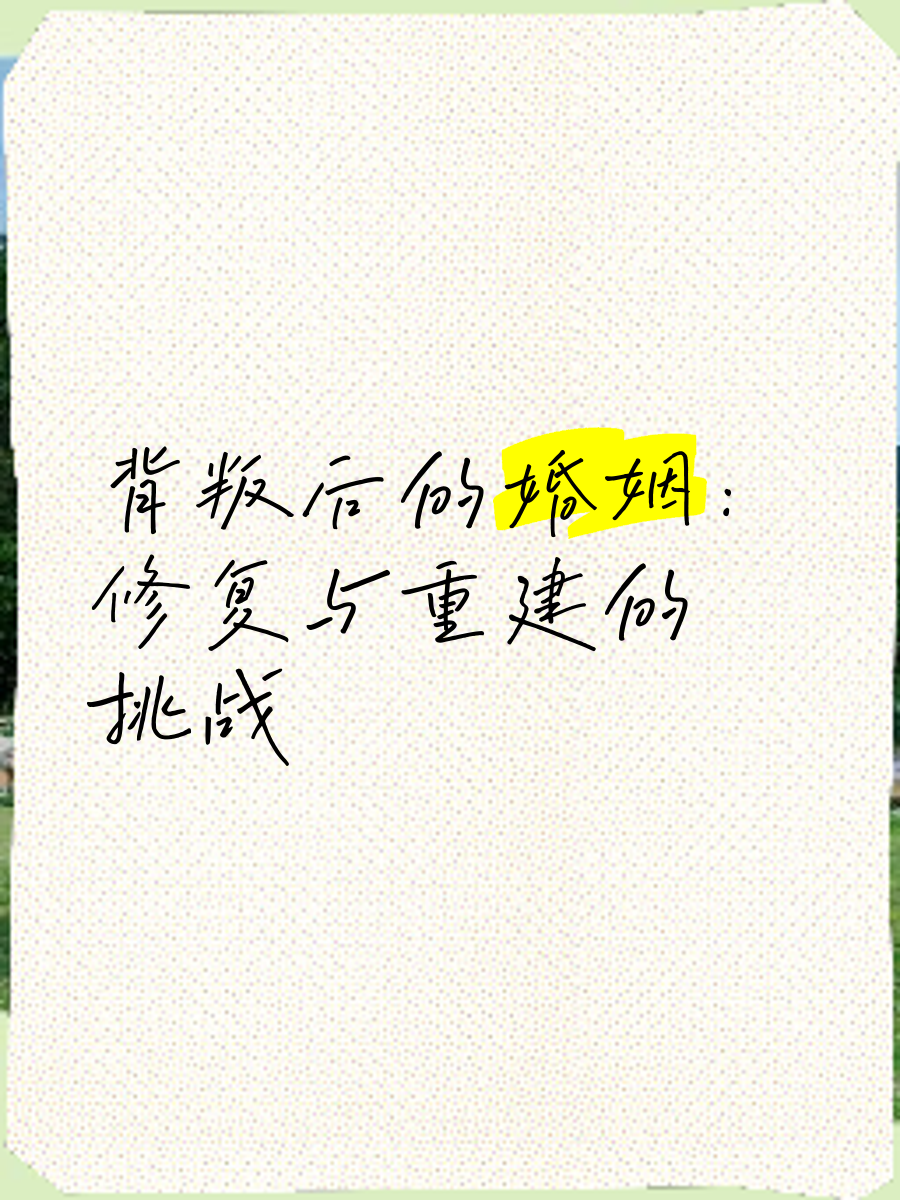 背叛后的婚姻:
修复与重建的
挑战